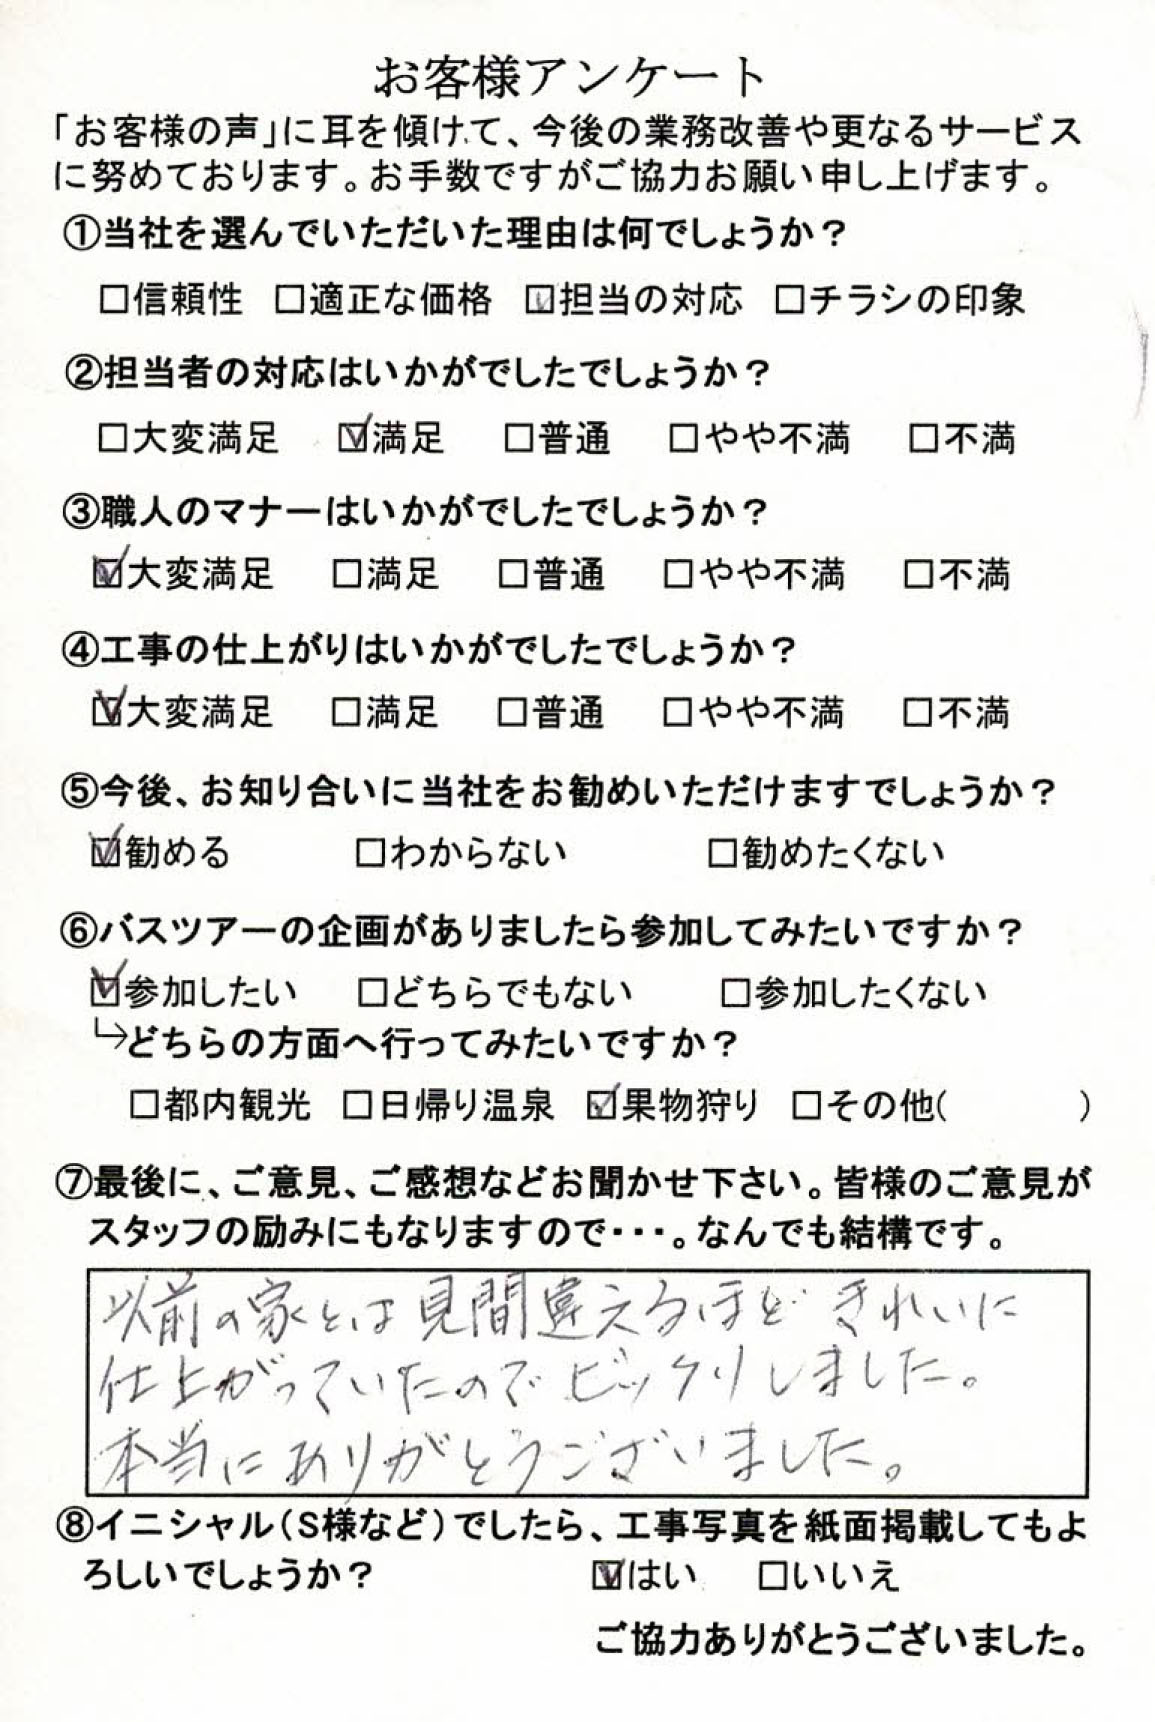 お客様アンケート
「お客様の声」に耳を傾けて、今後の業務改善や更なるサービス
に努めております。お手数ですがご協力お願い申し上げます。
①当社を選んでいただいた理由は何でしょうか？
□信頼性 □適正な価格 ☑担当の対応 □チラシの印象
②担当者の対応はいかがでしたでしょうか？
□大変満足 ☑満足 □普通 □やや不満 □不満
③職人のマナーはいかがでしたでしょうか？
☑大変満足 □満足 □普通 □やや不満 □不満
④工事の仕上がりはいかがでしたでしょうか？
☑大変満足 □満足 □普通 □やや不満 □不満
⑤今後、お知り合いに当社をお勧めいただけますでしょうか？
☑勧める □わからない □勧めたくない
⑥バスツアーの企画がありましたら参加してみたいですか？
☑参加したい □どちらでもない □参加したくない
↳どちらの方面へ行ってみたいですか？
□都内観光 □日帰り温泉 ☑果物狩り □その他( )
⑦最後に、ご意見、ご感想などお聞かせ下さい。皆様のご意見が
スタッフの励みにもなりますので・・・。なんでも結構です。
以前の家とは見間違えるほど きれいに
仕上がっていたのでビックリしました。
本当にありがとうございました。
⑧イニシャル(S様など)でしたら、工事写真を紙面掲載してもよ
ろしいでしょうか？ ☑はい □いいえ
ご協力ありがとうございました。